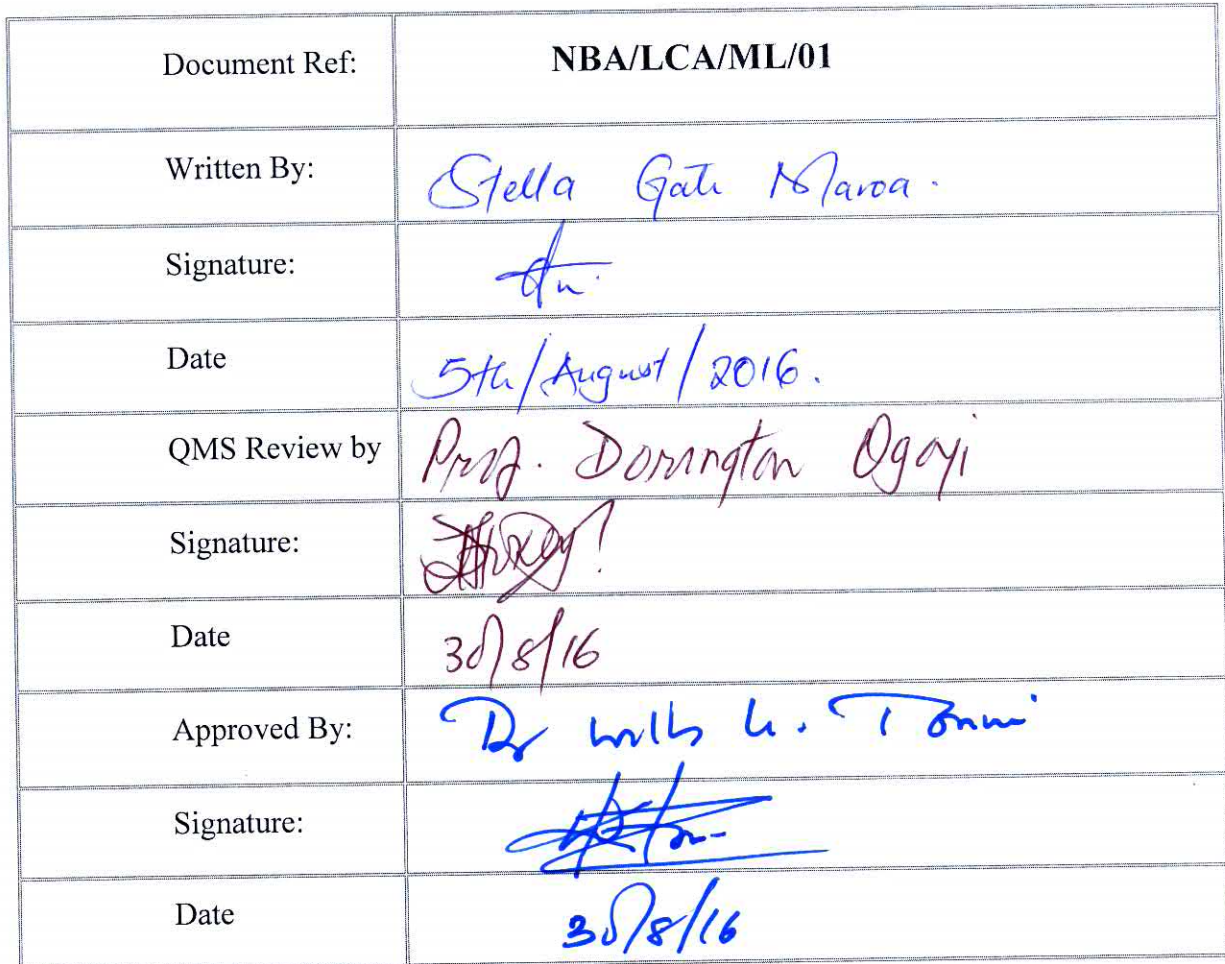 Document Ref: NBA/LCA/ML/01
Written By: Stella Gati Maroa.
Signature:
Date 5th/August/2016.
QMS Review by Prof. Dorington Ogoyi
Signature:
Date 30/8/16
Approved By: Dr
Signature:
Date 30/8/16